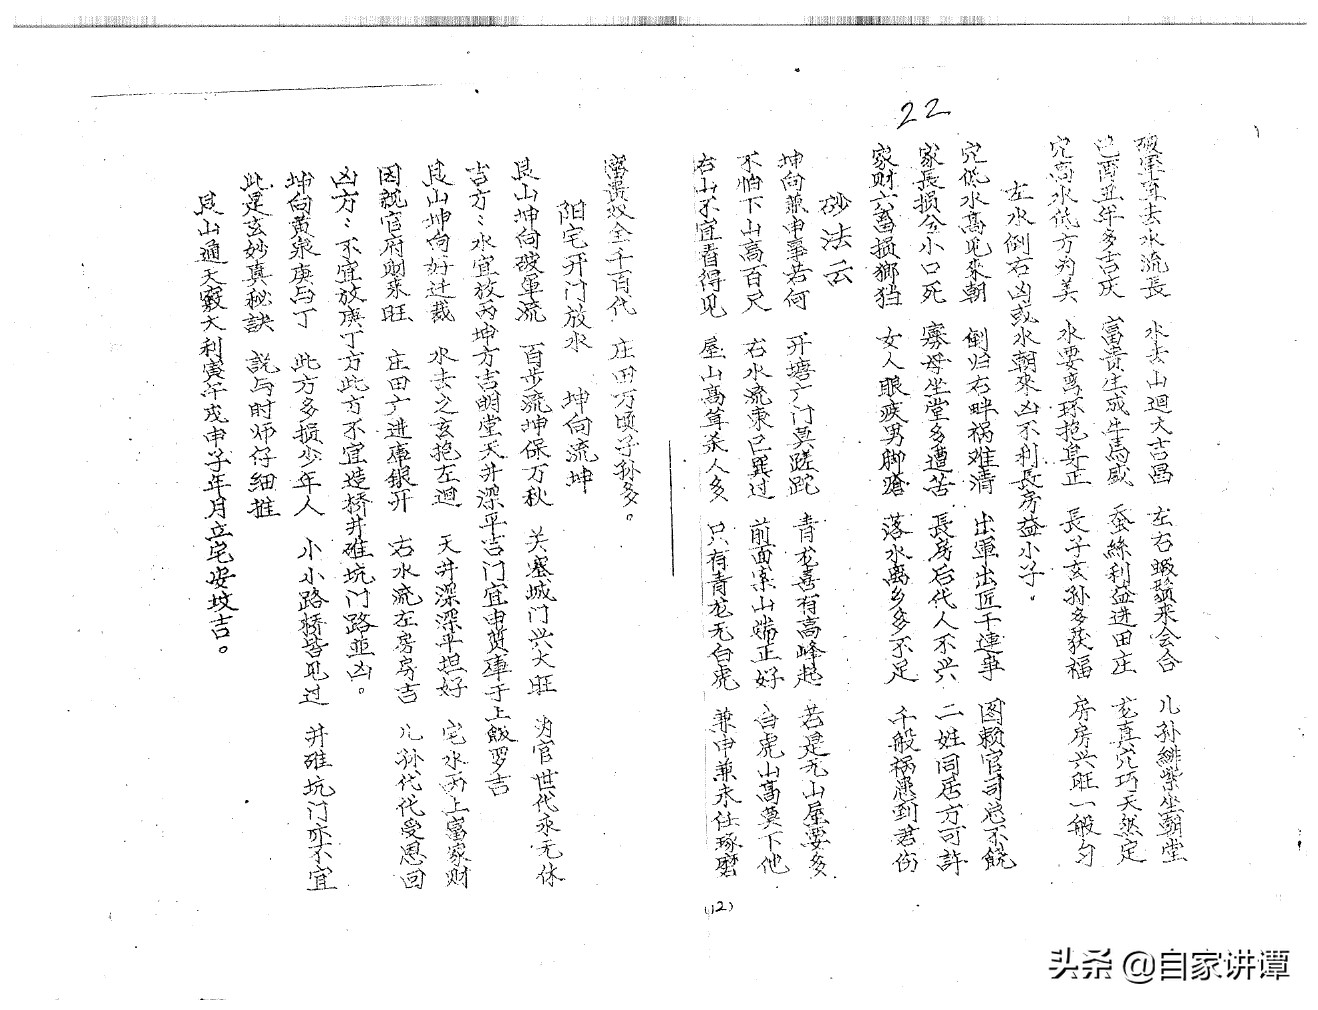 22
破军直去水流長 水去山迴大吉昌 左右蝦鬚来会合 儿孙緋紫坐朝堂
巳酉丑年多吉庆 富贵生成牛馬盛 蚕絲利益进田庄 龙真穴巧天然定
穴高水低方为美 水要弯环抱身正 長子亥孙多获福 房房兴旺一般匀
左水倒右凶或水朝來凶不利長房益小子。
穴低水高见來朝 倒归右畔祸难清 出軍出匠干連事 图赖官司总不饒
家長損分小口死 寡母坐堂多遭苦 長房后代人不兴 二姓同居方可許
家财六畜損 女人眼疾男脚蹌 落水离乡多不足 千般祸患到君伤
砂法云
坤向兼申事若何 开塘广门莫蹉跎 青龙喜有高峰起 若是无山屋要多
不怕下山高百尺 右水流東已巽过 前面案山端正好 白虎山高莫下他
右山不宜看得见 屋山高耸杀人多 只有青龙无白虎 兼申兼未任琢磨
(12)
富贵奴全千百代 庄田万顷子孙多。
阳宅开门放水 坤向流坤
艮山坤向破軍流 百步流坤保万秋 关塞城门兴大旺 为官世代永无休
吉方：水宜放丙坤方吉明堂天井深平吉门宜申庚庫于上飯罗吉
艮山坤向好迁栽 水去之玄抱左迴 天井深深平坦好 宅水两上富家财
因親官府财来旺 庄田广进庫银开 右水流左房房吉 儿孙代代受恩回
凶方：不宜放庚丁方此方不宜造桥井碓坑门路並凶。
坤向黄泉庚与丁 此方多损少年人 小小路桥皆见过 井碓坑门亦不宜
此是玄妙真秘訣 説与时师仔细推
艮山通天竅大利寅午戌申子年月立宅安坟吉。
头条 @自家讲谭